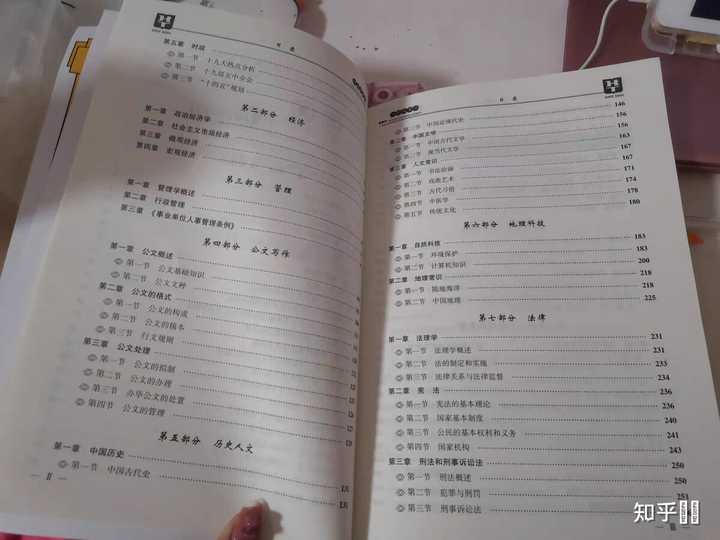 目 录
第五章 时政
◎ 第一节 十九大热点分析
◎ 第二节 十九届五中全会
◎ 第三节 “十四五”规划
第二部分 经济
第一章 政治经济学
第二章 社会主义市场经济
第三章 微观经济
第四章 宏观经济
第三部分 管理
第一章 管理学概述
第二章 行政管理
第三章 《事业单位人事管理条例》
第四部分 公文写作
第一章 公文概述
◎ 第一节 公文基础知识
◎ 第二节 公文文种
第二章 公文的格式
◎ 第一节 公文的构成
◎ 第二节 公文的稿本
◎ 第三节 行文规则
第三章 公文处理
◎ 第一节 公文的拟制
◎ 第二节 公文的办理
◎ 第三节 办毕公文的处置
◎ 第四节 公文的管理
第五部分 历史人文
第一章 中国历史
◎ 第一节 中国古代史
II
目 录
◎ 第二节 中国近现代史 146
第二章 中国文学 156
◎ 第一节 中国古代文学 156
◎ 第二节 现当代文学 163
第三章 人文常识 167
◎ 第一节 书法绘画 167
◎ 第二节 戏曲艺术 171
◎ 第三节 古代习俗 174
◎ 第四节 中医学 178
◎ 第五节 传统文化 180
第六部分 地理科技
第一章 自然科技 183
◎ 第一节 环境保护 183
◎ 第二节 计算机知识 200
第二章 地理常识 218
◎ 第一节 陆地海洋 218
◎ 第二节 中国地理 225
第七部分 法律
第一章 法理学 231
◎ 第一节 法理学概述 231
◎ 第二节 法的制定和实施 233
◎ 第三节 法律关系与法律监督 234
第二章 宪 法 236
◎ 第一节 宪法的基本理论 236
◎ 第二节 国家基本制度 240
◎ 第三节 公民的基本权利和义务 241
◎ 第四节 国家机构 243
第三章 刑法和刑事诉讼法 250
◎ 第一节 刑法概述 250
◎ 第二节 犯罪与刑罚 251
◎ 第三节 刑事诉讼法
III
知乎